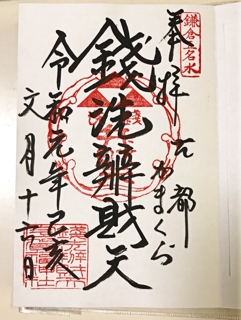 鎌倉五名水
奉拝 古都
かまくら
銭洗辨財天
令和元年己亥
文月十六日